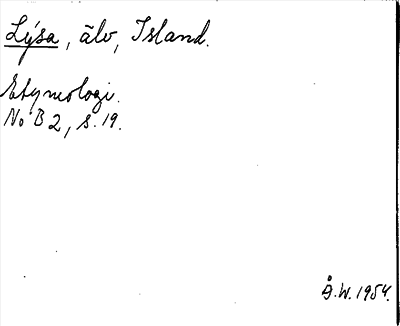 Lýsa, älv, Island.
Etymologi.
NoB 2, s. 19.
Å.W. 1954.